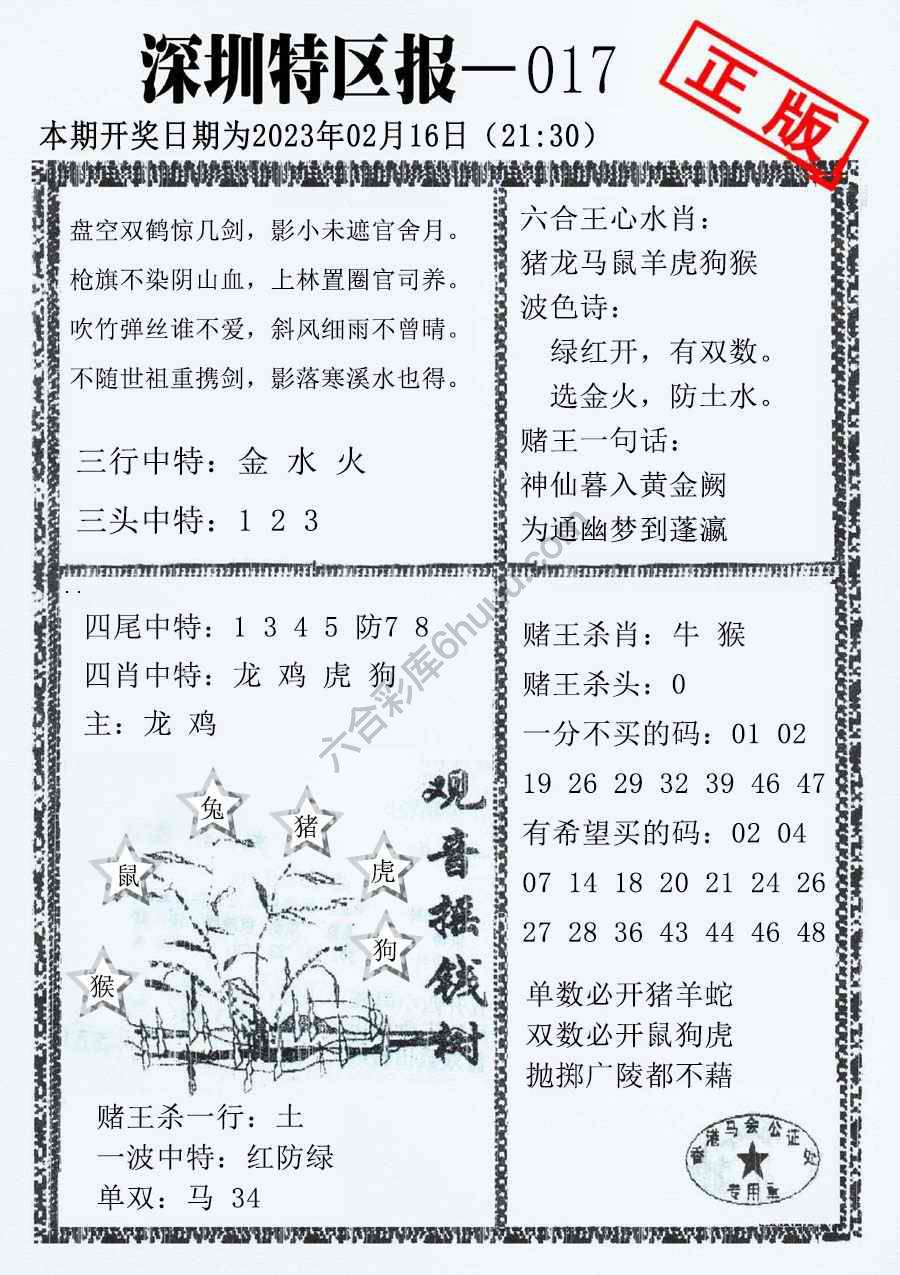 深圳特区报—017
正版
本期开奖日期为2023年02月16日（21:30）
盘空双鹤惊几剑，影小未遮官舍月。
枪旗不染阴山血，上林置圈官司养。
吹竹弹丝谁不爱，斜风细雨不曾晴。
不随世祖重携剑，影落寒溪水也得。
三行中特：金 水 火
三头中特：1 2 3
六合王心水肖：
猪龙马鼠羊虎狗猴
波色诗：
绿红开，有双数。
选金火，防土水。
赌王一句话：
神仙暮入黄金阙
为通幽梦到蓬瀛
四尾中特：1 3 4 5 防7 8
四肖中特：龙 鸡 虎 狗
主：龙 鸡
兔
猪
鼠
虎
狗
猴
观音摇钱树
赌王杀一行：土
一波中特：红防绿
单双：马 34
赌王杀肖：牛 猴
赌王杀头：0
一分不买的码：01 02
19 26 29 32 39 46 47
有希望买的码：02 04
07 14 18 20 21 24 26
27 28 36 43 44 46 48
单数必开猪羊蛇
双数必开鼠狗虎
抛掷广陵都不藉
香港马会公证处
专用章
六合彩库6huuu.com